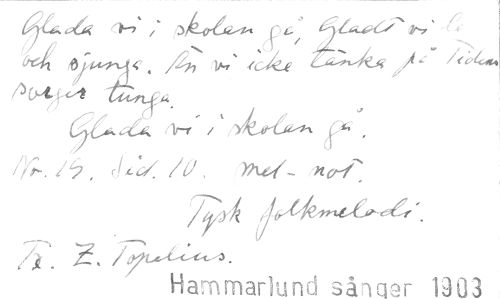 Glada vi i skolan gå, Gladt vi le
och sjunga. Än vi icke tänka på Tidens
sorger tunga.
Glada vi i skolan gå.
Nr. 19. Sid. 10. mel-not.
Tysk folkmelodi.
Tx. Z. Topelius.
Hammarlund sånger 1903